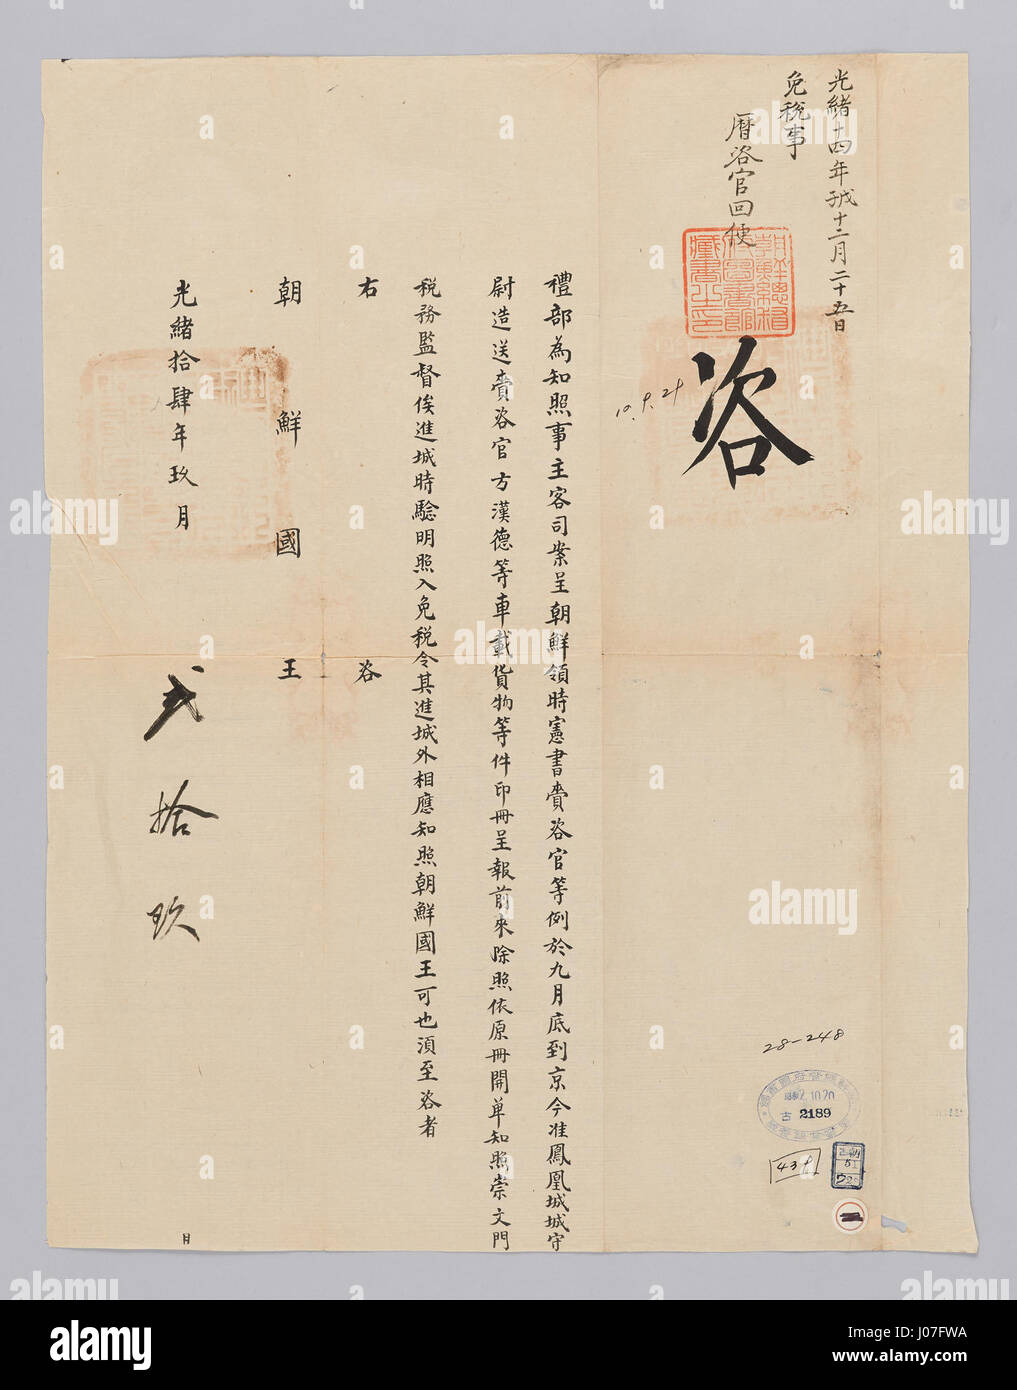 光緒十四年戊子十二月二十五日
免稅事
曆咨官回便
朝鮮總督府圖書館藏書之印
咨
10.9.21
禮部為知照事主客司案呈朝鮮領時憲書賫咨官等例於九月底到京今准鳳凰城城守
尉造送賫咨官方漢德等車載貨物等件印冊呈報前來除照依原冊開單知照崇文門
稅務監督俟進城時驗明照入免稅令其進城外相應知照朝鮮國王可也須至咨者
右咨
朝鮮國王
光緒拾肆年玖月
貳拾玖
日
28-248
12.10.20
古 2189
438
alamy
Image ID: J07FWA
www.alamy.com